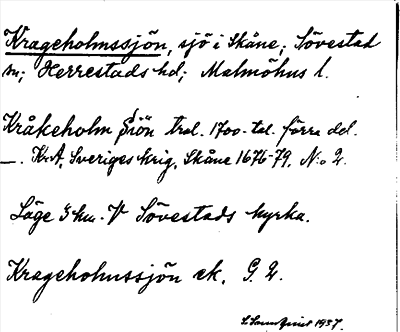 Krageholmssjön, sjö i Skåne; Sövestad
sn; Herrestads hd; Malmöhus l.
Kråkeholm Siön trol. 1700-tal. förra del.
—. KrA, Sveriges krig, Skåne 1676-79. N:o 2.
Läge 3 km. V Sövestads kyrka.
Krageholmssjön ek. G. 2.
1937.